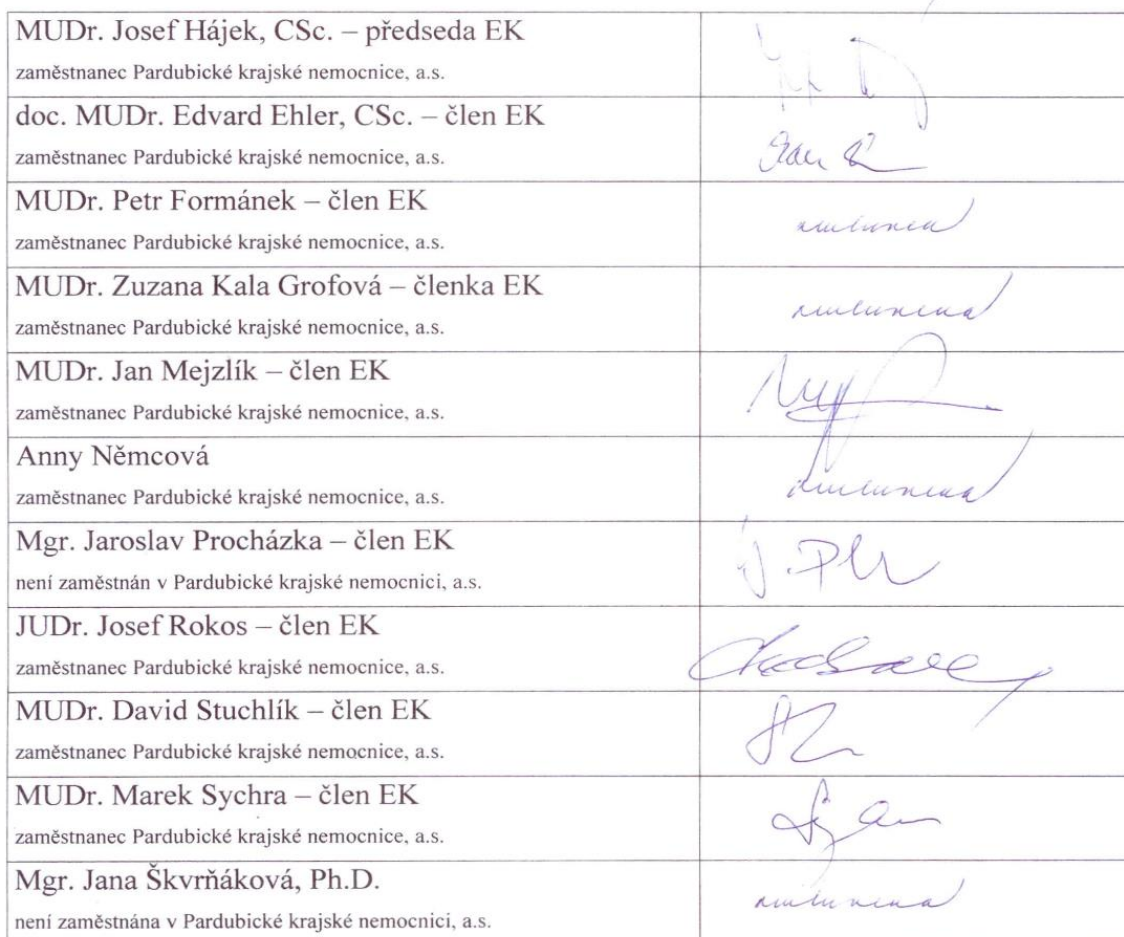 MUDr. Josef Hájek, CSc. – předseda EK
zaměstnanec Pardubické krajské nemocnice, a.s.
doc. MUDr. Edvard Ehler, CSc. – člen EK
zaměstnanec Pardubické krajské nemocnice, a.s.
MUDr. Petr Formánek – člen EK
omluven
zaměstnanec Pardubické krajské nemocnice, a.s.
MUDr. Zuzana Kala Grofová – členka EK
omluvena
zaměstnanec Pardubické krajské nemocnice, a.s.
MUDr. Jan Mejzlík – člen EK
zaměstnanec Pardubické krajské nemocnice, a.s.
Anny Němcová
omluvena
zaměstnanec Pardubické krajské nemocnice, a.s.
Mgr. Jaroslav Procházka – člen EK
není zaměstnán v Pardubické krajské nemocnici, a.s.
JUDr. Josef Rokos – člen EK
zaměstnanec Pardubické krajské nemocnice, a.s.
MUDr. David Stuchlík – člen EK
zaměstnanec Pardubické krajské nemocnice, a.s.
MUDr. Marek Sychra – člen EK
zaměstnanec Pardubické krajské nemocnice, a.s.
Mgr. Jana Škvrňáková, Ph.D.
omluvena
není zaměstnána v Pardubické krajské nemocnici, a.s.